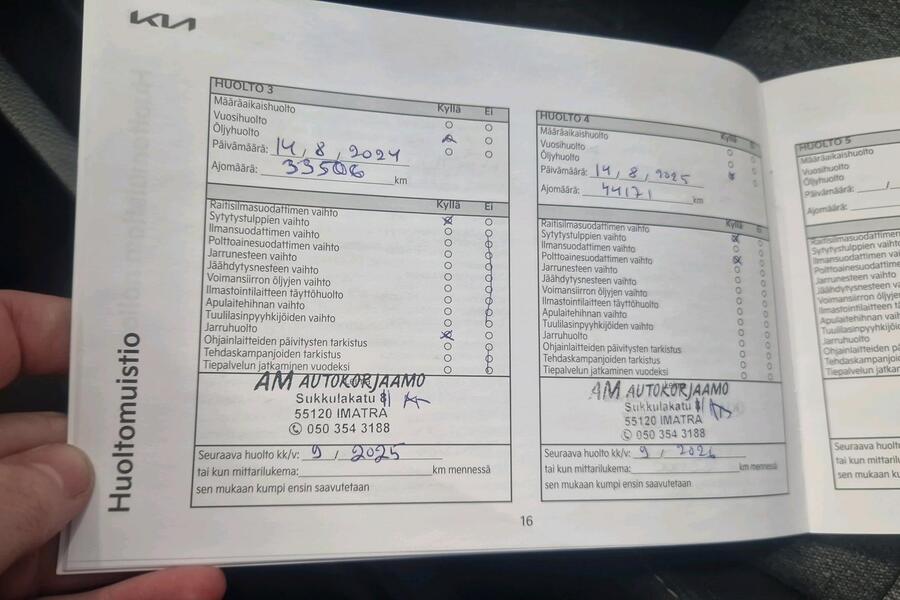 KIA
Huoltomuistio
HUOLTO 3
Kyllä Ei
Määräaikaishuolto
Vuosihuolto
Öljyhuolto
Päivämäärä: 14, 8, 2024
Ajomäärä: 33506 km
Kyllä Ei
Raitisilmasuodattimen vaihto
Sytytystulppien vaihto
Ilmansuodattimen vaihto
Polttoainesuodattimen vaihto
Jarrunesteen vaihto
Jäähdytysnesteen vaihto
Voimansiirron öljyjen vaihto
Ilmastointilaitteen täyttöhuolto
Apulaitehihnan vaihto
Tuulilasinpyyhkijöiden vaihto
Jarruhuolto
Ohjainlaitteiden päivitysten tarkistus
Tehdaskampanjoiden tarkistus
Tiepalvelun jatkaminen vuodeksi
AM AUTOKORJAAMO
Sukkulakatu
55120 IMATRA
050 354 3188
Seuraava huolto kk/v: 9, 2025
tai kun mittarilukema: km mennessä
sen mukaan kumpi ensin saavutetaan
HUOLTO 4
Kyllä Ei
Määräaikaishuolto
Vuosihuolto
Öljyhuolto
Päivämäärä: 14, 8, 2025
Ajomäärä: 44171 km
Kyllä Ei
Raitisilmasuodattimen vaihto
Sytytystulppien vaihto
Ilmansuodattimen vaihto
Polttoainesuodattimen vaihto
Jarrunesteen vaihto
Jäähdytysnesteen vaihto
Voimansiirron öljyjen vaihto
Ilmastointilaitteen täyttöhuolto
Apulaitehihnan vaihto
Tuulilasinpyyhkijöiden vaihto
Jarruhuolto
Ohjainlaitteiden päivitysten tarkistus
Tehdaskampanjoiden tarkistus
Tiepalvelun jatkaminen vuodeksi
AM AUTOKORJAAMO
Sukkulakatu
55120 IMATRA
050 354 3188
Seuraava huolto kk/v: 9, 2026
tai kun mittarilukema: km mennessä
sen mukaan kumpi ensin saavutetaan
16
HUOLTO 5
Määräaikaishuolto
Vuosihuolto
Öljyhuolto
Päivämäärä: /
Ajomäärä:
Raitisilmasuodattimen
Sytytystulppien vaihto
Ilmansuodattimen vaihto
Polttoainesuodattimen
Jarrunesteen vaihto
Jäähdytysnesteen vaihto
Voimansiirron öljyjen
Ilmastointilaitteen
Apulaitehihnan vaihto
Tuulilasinpyyhkijöiden
Jarruhuolto
Ohjainlaitteiden
Tehdaskampanjoiden
Tiepalvelun
Seuraava huolto
tai kun
sen mukaan